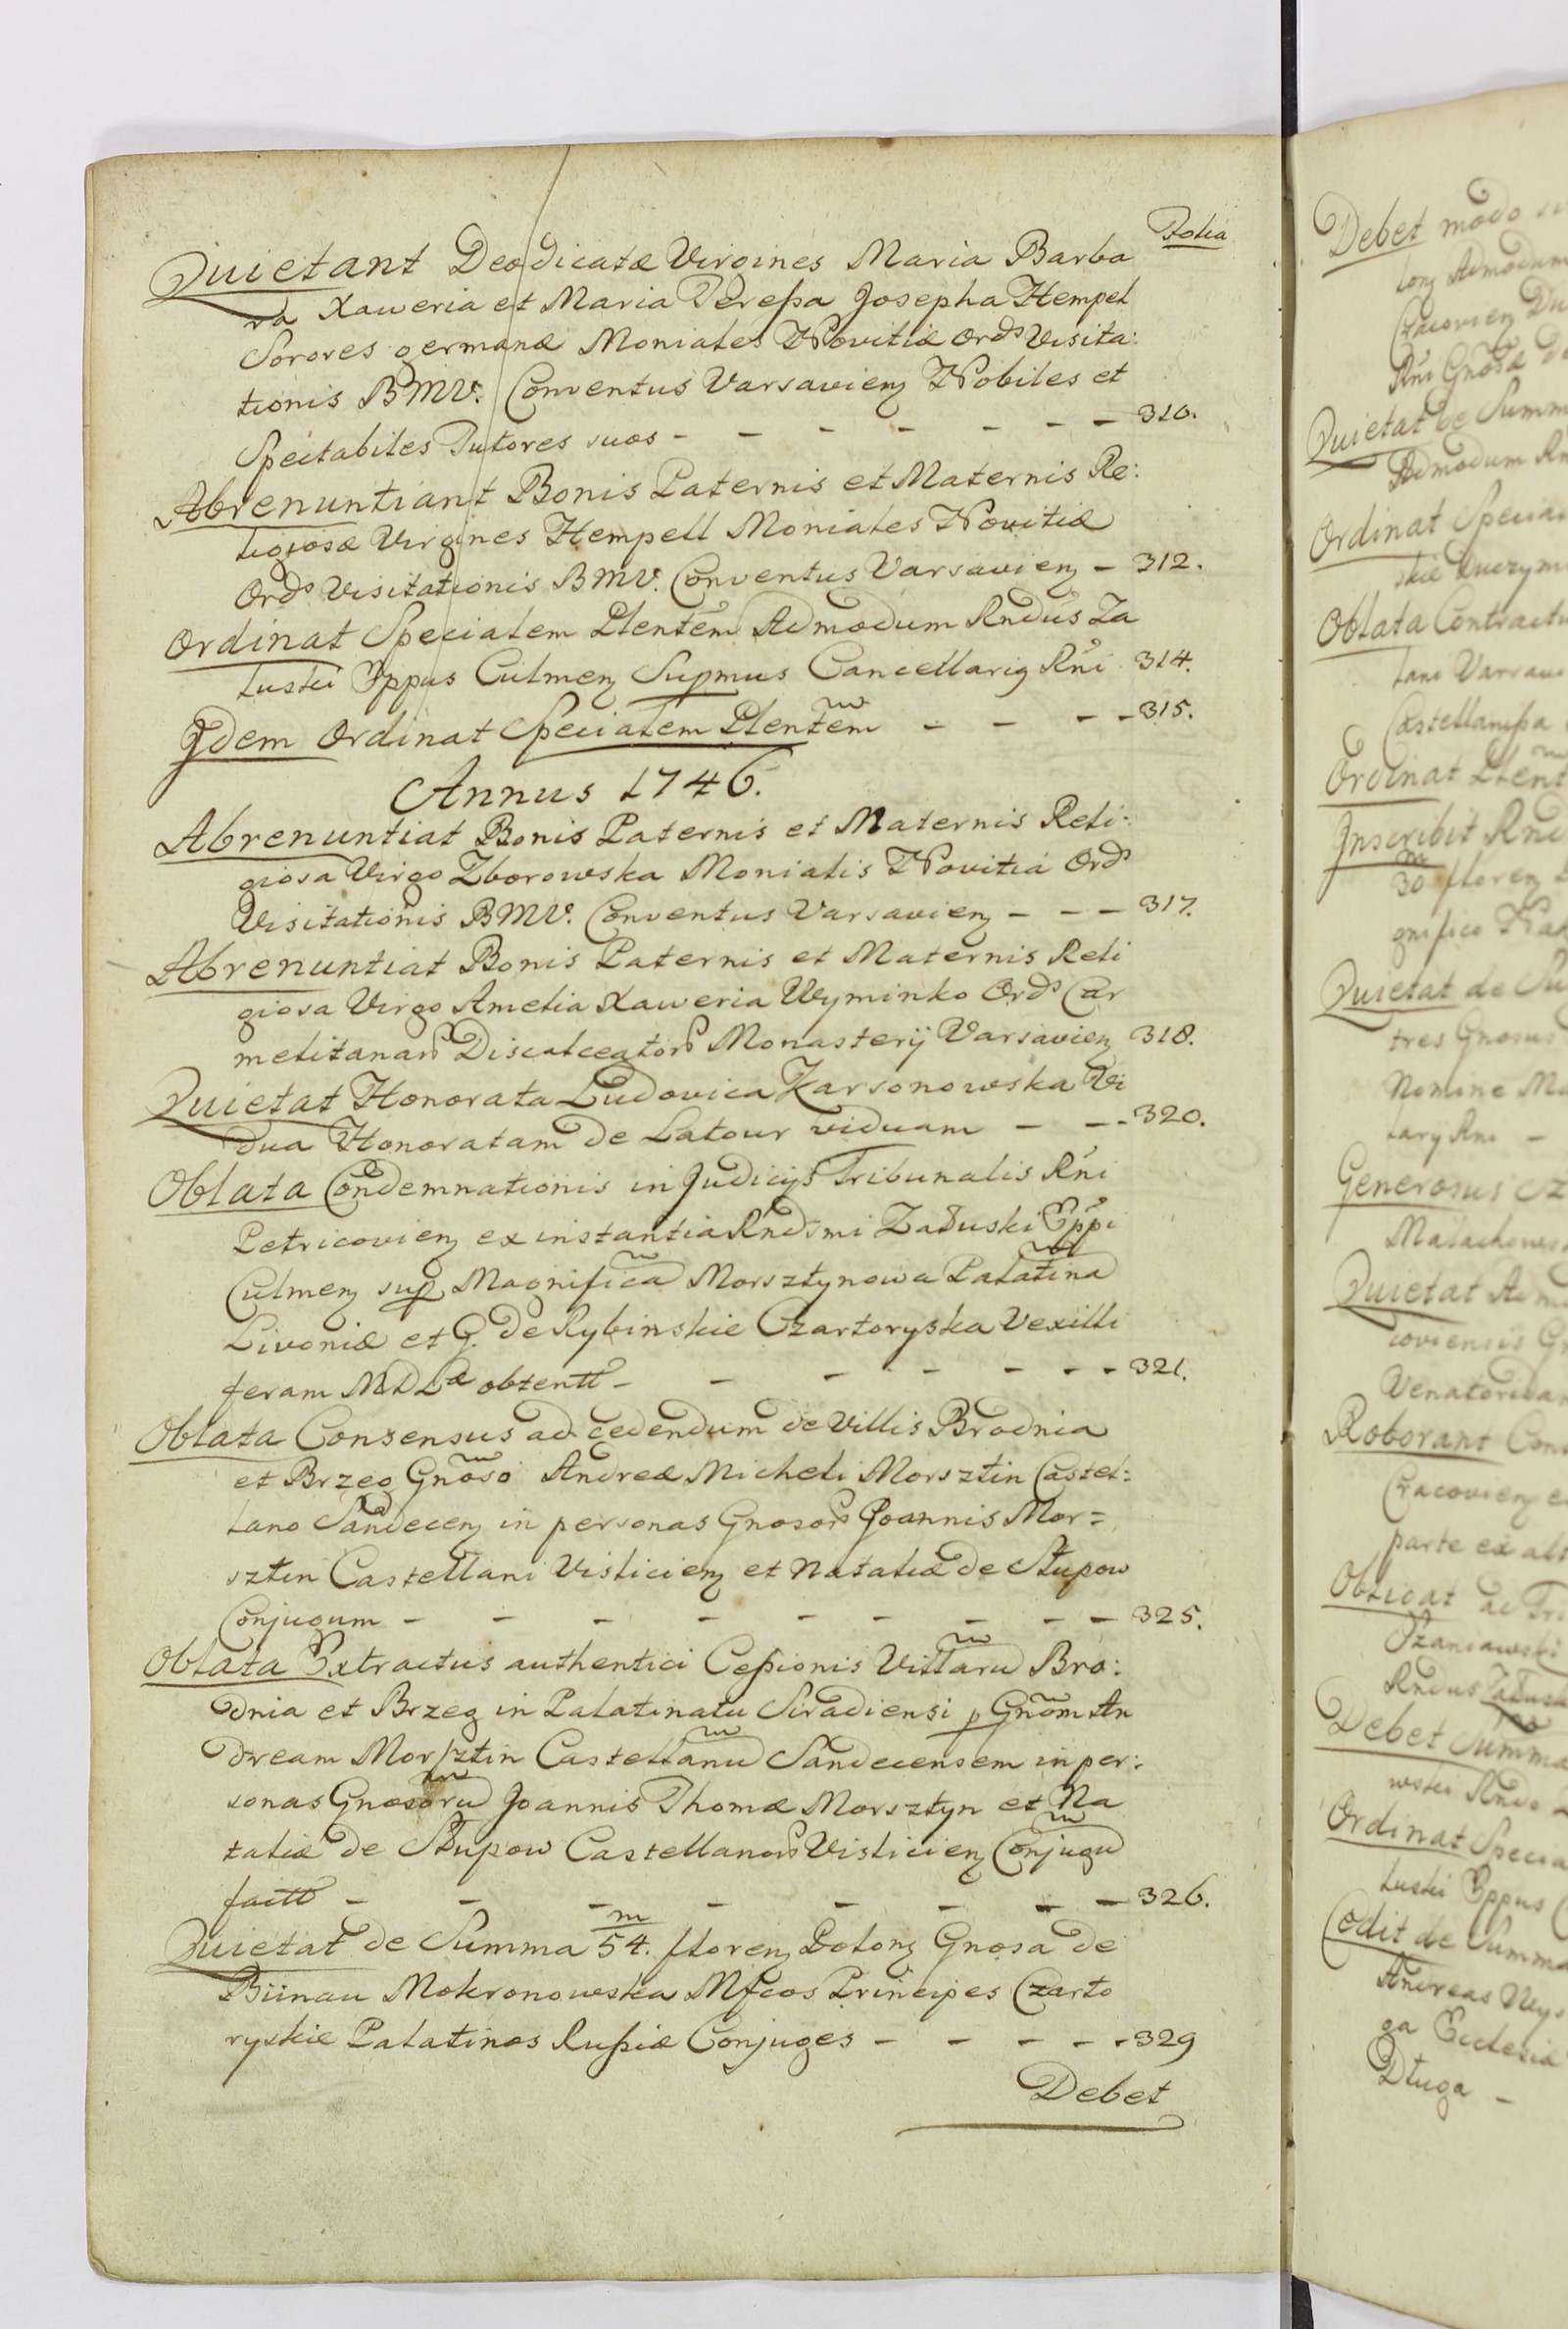 Folia
Quietant Deodicatæ Virgines Maria Barba
ra Xaweria et Maria Teressa Josepha Hempel
Sorores germanæ Moniales Novitiæ Ord͛s Visita:
tionis BMV. Conventus Varsavien̄ Nobiles et
Spectabiles Tutores suos - - - - - - - 310.
Abrenuntiant Bonis Paternis et Maternis Re:
ligiosæ Virgines Hempell Moniales Novitiæ
Ord͛s Visitationis BMV. Conventus Varsavien̄ - 312.
Ordinat Specialem Plentem Admodum Rndus Za
łuski Eppus Culmen̄ Supmus Cancellarig Rni 314.
Idem Ordinat Specialem Plentem - - - - 315.
Annus 1746.
Abrenuntiat Bonis Paternis et Maternis Reli-
giosa Virgo Zborowska Monialis Novitia Ord͛s
Visitationis BMV. Conventus Varsavien̄ - - - 317.
Abrenuntiat Bonis Paternis et Maternis Reli
giosa Virgo Amelia Xaweria Wyminko Ord͛s Car
melitanar Discalceator Monasterij Varsavien̄ 318.
Quietat Honorata Ludovica Karsonowska Vi
dua Honoratam de Latour viduam - - - 320.
Oblata Condemnationis in Judicijs Tribunalis Rni
Petricovien̄ ex instantia Rndsmi Załuski Eppi
Culmen̄ sup Magnifica Morsztynowa Palatina
Livoniæ et G. de Rybinskie Czartoryska Vexilli
feram MDLæ obtentt - - - - - - - 321.
Oblata Consensus ad cedendum de Villis Brodnia
et Brzeg Gnoso Andreæ Micheli Morsztin Castel:
lano Sandecen̄ in personas Gnosor Joannis Mor=
sztin Castellani Vislicien̄ et Nataliæ de Słupow
Conjugum - - - - - - - - 325.
Oblata Extractus authentici Cessionis Villaru Bro:
dnia et Brzeg in Palatinatu Siradiensi p Gnom An
dream Morsztin Castellanu Sandecensem in per:
sonas Gnosoru Joannis Thomæ Morsztyn et Na
taliæ de Słupow Castellanor Vislicien̄ Conjugu
factt - - - - - - - - 326.
Quietat de Summa 54.m floren̄ Polon̄ Gnosa de
Biinau Mokronowska Mfcos Principes Czarto
ryskie Palatinos Russiæ Conjuges - - - - - 329
Debet
Debet modo
Admodum
Cracovien̄
Rni Gnosa
Quietat de Summ
Admodum Rn
Ordinat Special
Oblata Contractu
Castellanissa
Ordinat Plent
Inscribit Rnd
30m floren̄
gnifico
Quietat de Su
tres Gnosus
Nomine Ma
larij Rni -
Generosus
Małachows
Quietat Adm
coviensis G
Venatori
Roborant Cons
Cracovien̄ e
parte ex alt
Obligat
Szaniawski
Rndus Załusk
Debet Summa
wski Rndo
Ordinat Specia
łuski Eppus C
Cedit de Summa
Andreas
ga Ecclesia
Długa -